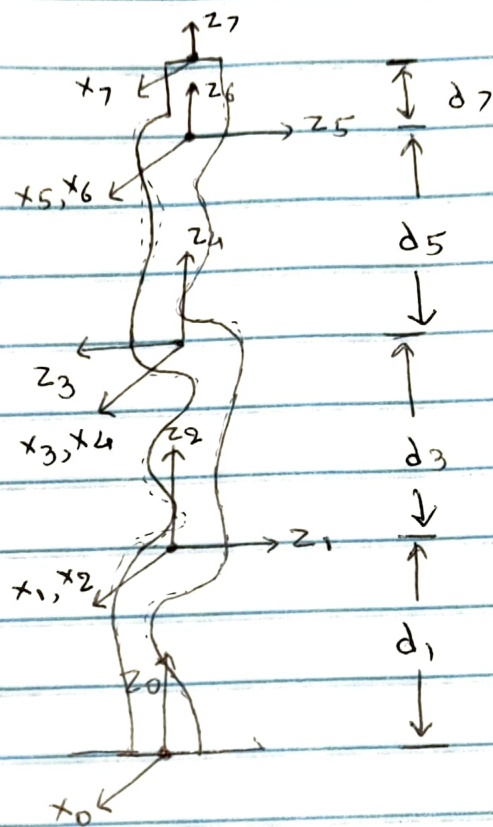 z7
x7
z6
d7
z5
x5,x6
z4
d5
z3
x3,x4
z2
d3
z1
x1,x2
d1
z0
x0